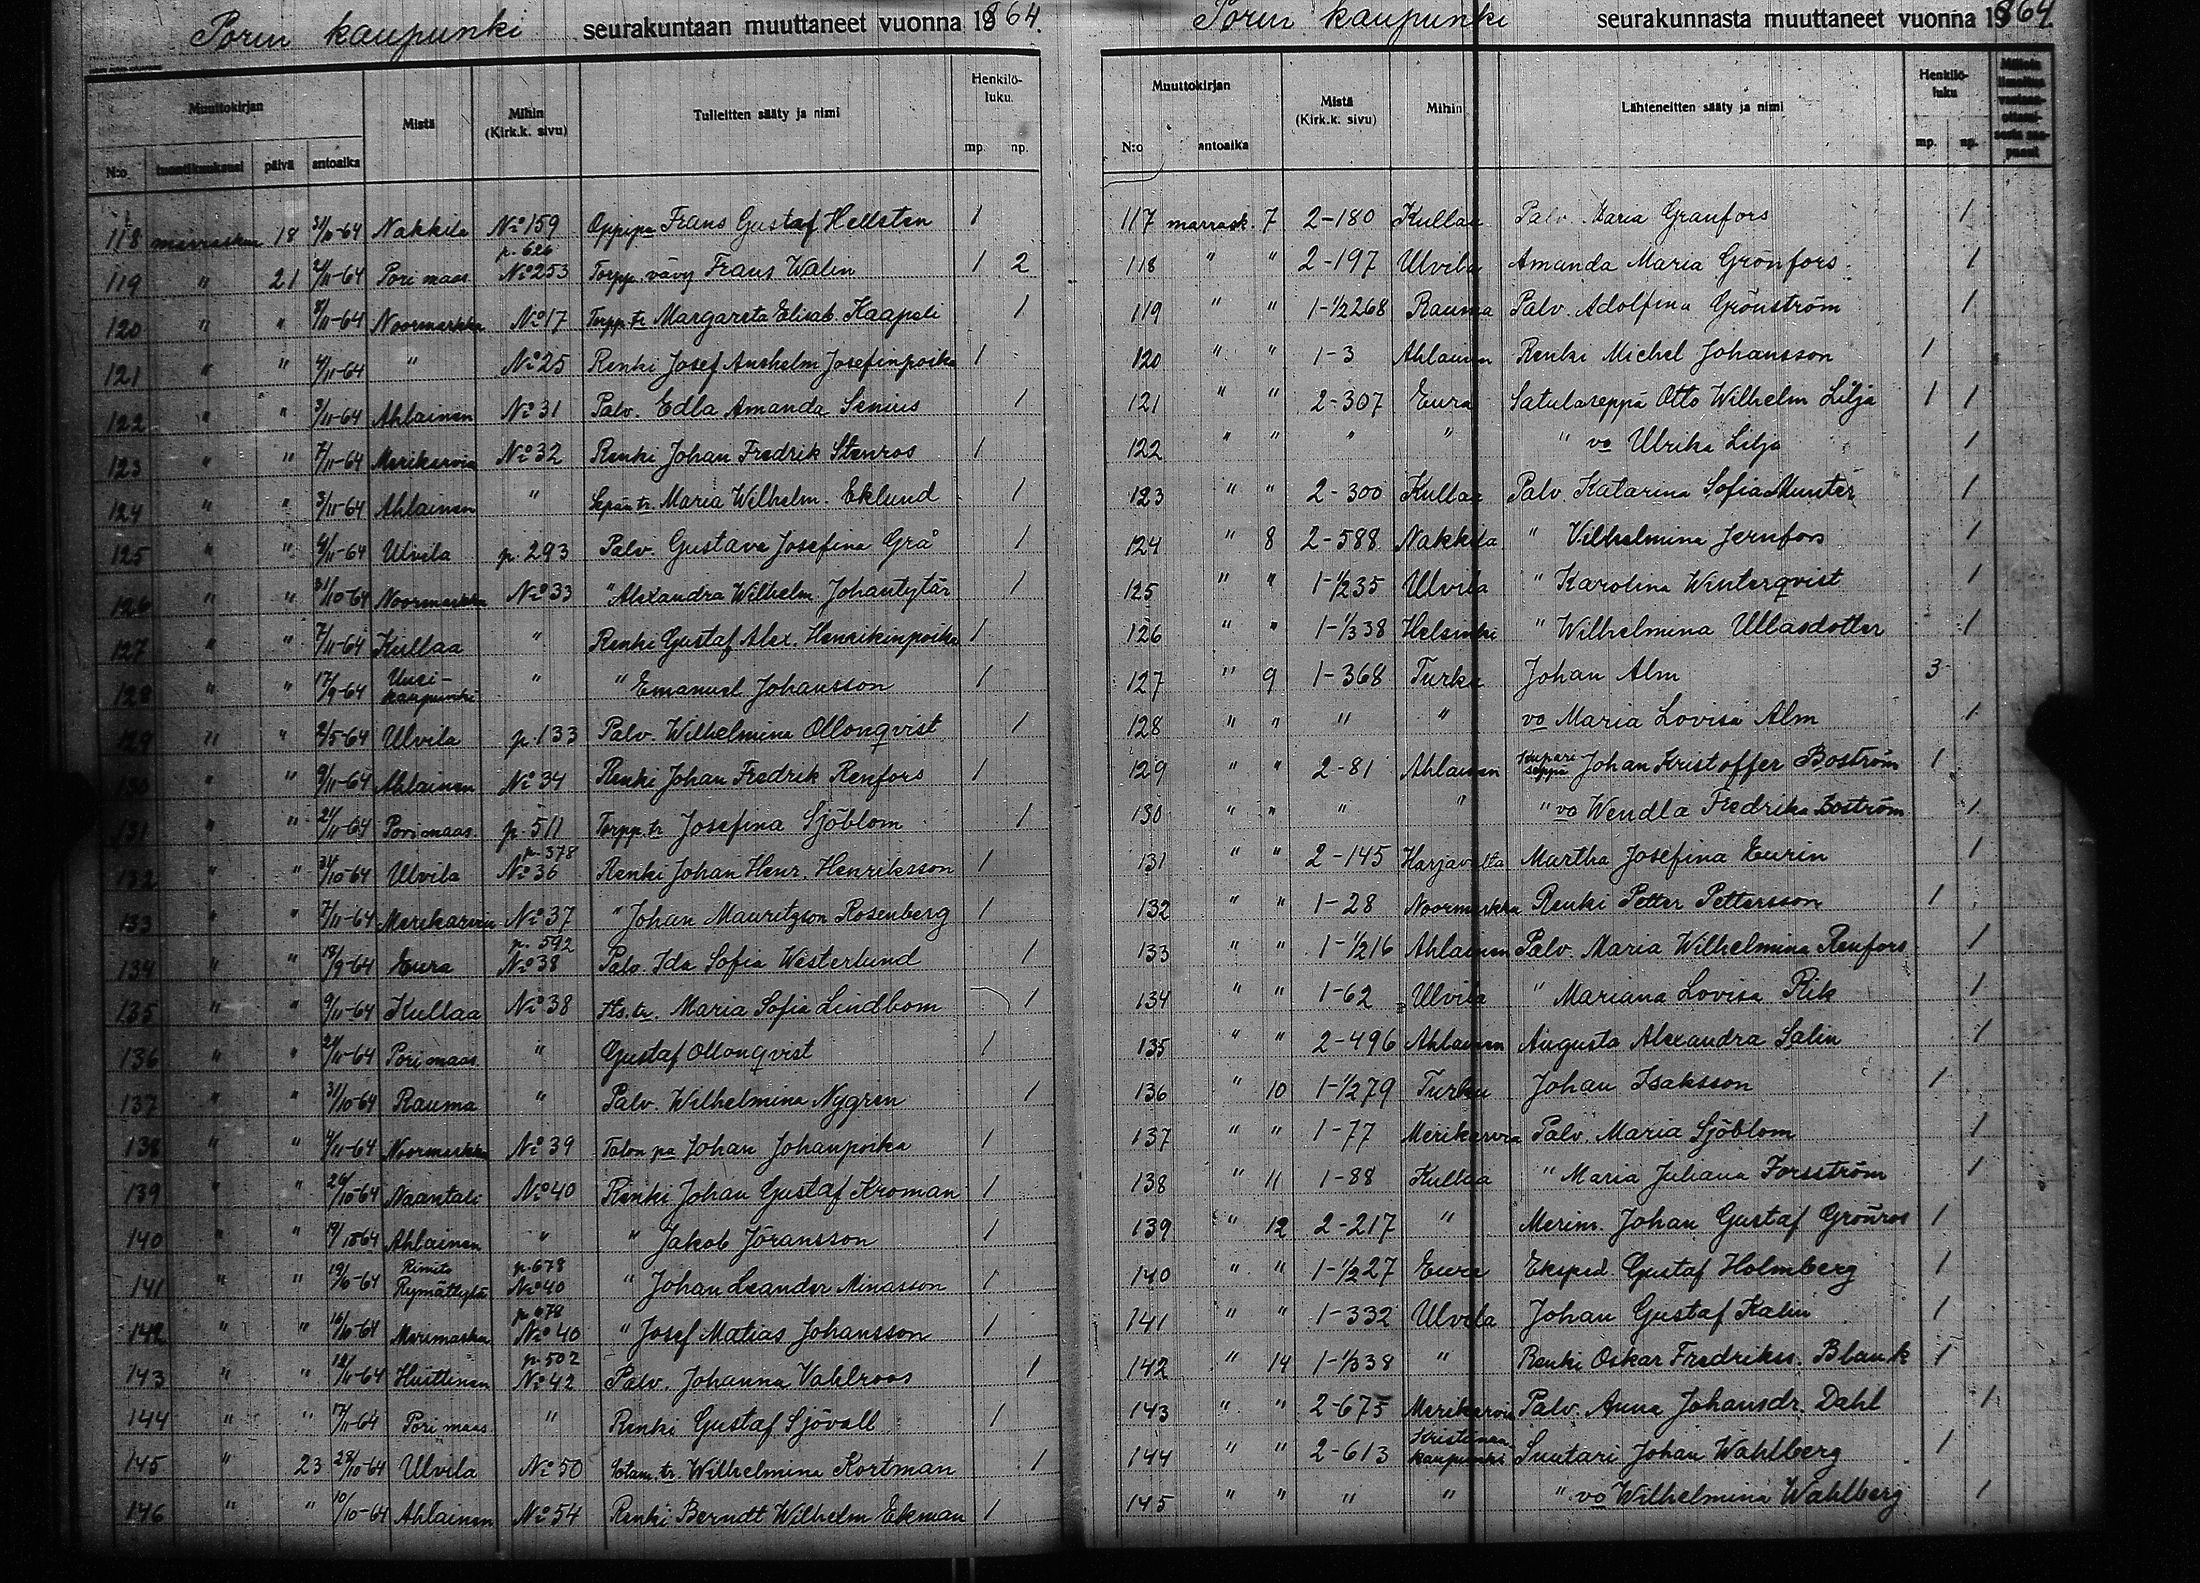 Porin kaupunki seurakuntaan muuttaneet vuonna 1864.
Muuttokirjan
Mistä
Mihin (Kirk.k. sivu)
Tulleitten sääty ja nimi
Henkilöluku.
N:o tuontikuukausi päivä antoaika mp. np.
118 marraskuu 18 31/10-64 Nakkila No 159 Oppipa Frans Gustaf Hellsten 1
p. 626
119 " 21 21/11-64 Pori maas No 253 Torpp. vävy Frans Walin 1 2
120 " " 8/11-64 Noormarkku No 17 Torpp.tr Margareta Elisab. Kaapali 1
121 " " 4/11-64 " No 25 Renki Josef Anshelm Josefinpoika 1
122 " " 3/11-64 Ahlainen No 31 Palv. Edla Amanda Senius 1
123 " " 7/11-64 Merikarvia No 32 Renki Johan Fredrik Stenros 1
124 " " 3/11-64 Ahlainen " Sepän tr. Maria Wilhelm. Eklund 1
125 " " 4/11-64 Ulvila p. 293 Palv. Gustava Josefina Grå 1
126 " " 31/10-64 Noormarkku No 33 " Alexandra Wilhelm. Johantytär 1
127 " " 7/11-64 Kullaa " Renki Gustaf Alex. Henrikinpoika 1
128 " " 17/9-64 Uusi-kaupunki " " Emanuel Johansson 1
129 " " 2/5-64 Ulvila p. 133 Palv. Wilhelmina Ollonqvist 1
130 " " 9/11-64 Ahlainen No 34 Renki Johan Fredrik Renfors 1
131 " " 21/11-64 Pori maas. p. 511 Torpp. tr Josefina Sjöblom 1
p. 378
132 " " 31/10-64 Ulvila No 36 Renki Johan Henr. Henriksson 1
133 " " 7/11-64 Merikarvia No 37 " Johan Mauritzson Rosenberg 1
p. 592
134 " " 18/9-64 Eura No 38 Palv. Ida Sofia Westerlund 1
135 " " 9/11-64 Kullaa No 38 Its. tr. Maria Sofia Lindbom 1
136 " " 21/11-64 Pori maas. " Gustaf Ollonqvist 1
137 " " 31/10-64 Rauma " Palv. Wilhelmina Nygren 1
138 " " 4/11-64 Noormarkku No 39 Talon pa Johan Johanpoika 1
139 " " 26/10-64 Naantali No 40 Renki Johan Gustaf Kroman 1
140 " " 19/10-64 Ahlainen " " Jakob Jöransson 1
Rimito p. 678
141 " " 19/10-64 Rymättylä No 40 " Johan Leander Minasson 1
p. 678
142 " " 16/10-64 Merimasku No 40 " Josef Matias Johansson 1
p. 502
143 " " 12/11-64 Huittinen No 42 Palv. Johanna Vahlroos 1
144 " " 17/11-64 Pori maas. " Renki Gustaf Sjövall 1
145 " 23 28/10-64 Ulvila No 50 Sotam. tr. Wilhelmina Kortman 1
146 " " 10/10-64 Ahlainen No 54 Renki Berndt Wilhelm Ekman 1
Porin kaupunki seurakunnasta muuttaneet vuonna 1864.
Muuttokirjan
Mistä (Kirk.k. sivu)
Mihin
Lähteneitten sääty ja nimi
Henkilöluku
N:o antoaika mp. np.
117 marrask. 7 2-180 Kullaa Palv. Maria Granfors 1
118 " " 2-197 Ulvila Amanda Maria Grönfors 1
119 " " 1-1/2 268 Rauma Palv. Adolfina Grönström 1
120 " " 1-3 Ahlainen Renki Michel Johansson 1
121 " " 2-307 Eura Satulaseppä Otto Wilhelm Lilja 1 1
122 " " " " " vo Ulrika Lilja 1
123 " " 2-300 Kullaa Palv. Katarina Sofia Munter 1
124 " 8 2-588 Nakkila " Vilhelmina Jernfors 1
125 " " 1-1/2 35 Ulvila " Karolina Winterqvist 1
126 " " 1-1/3 38 Helsinki " Wilhelmina Ullasdotter 1
127 " 9 1-368 Turku Johan Alm 3
128 " " " " vo Maria Lovisa Alm 1
129 " " 2-81 Ahlainen Kupari seppä Johan Kristoffer Boström 1
130 " " " " " vo Wendla Fredrika Boström 1
131 " " 2-145 Harjavalta Martha Josefina Eurin 1
132 " " 1-28 Noormarkku Renki Petter Pettersson 1
133 " " 1-1/2 16 Ahlainen Palv. Maria Wilhelmina Renfors 1
134 " " 1-62 Ulvila " Mariana Lovisa Rik 1
135 " " 2-496 Ahlainen Augusta Alexandra Salin 1
136 " 10 1-1/2 79 Turku Johan Isaksson 1
137 " " 1-77 Merikarvia Palv. Maria Sjöblom 1
138 " 11 1-88 Kullaa " Maria Juliana Forsström 1
139 " 12 2-217 " Merim. Johan Gustaf Grönros 1
140 " " 1-1/2 27 Eura Eksped. Gustaf Holmberg 1
141 " " 1-332 Ulvila Johan Gustaf Kalin 1
142 " 14 1-1/3 38 " Renki Oskar Fredrikss. Blank 1
143 " " 2-675 Merikarvia Palv. Anna Johansdr. Dahl 1
144 " " 2-613 Kristiinan kaupunki Suutari Johan Wahlberg 1
145 " " " " " vo Wilhelmina Wahlberg 1